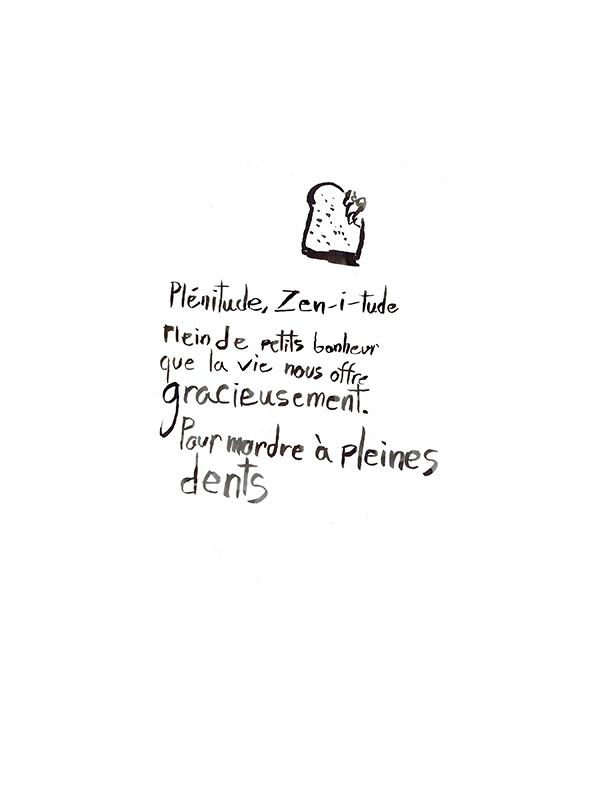 Plénitude, Zen-i-tude
Plein de petits bonheur
que la vie nous offre
gracieusement.
Pour mordre à pleines
dents